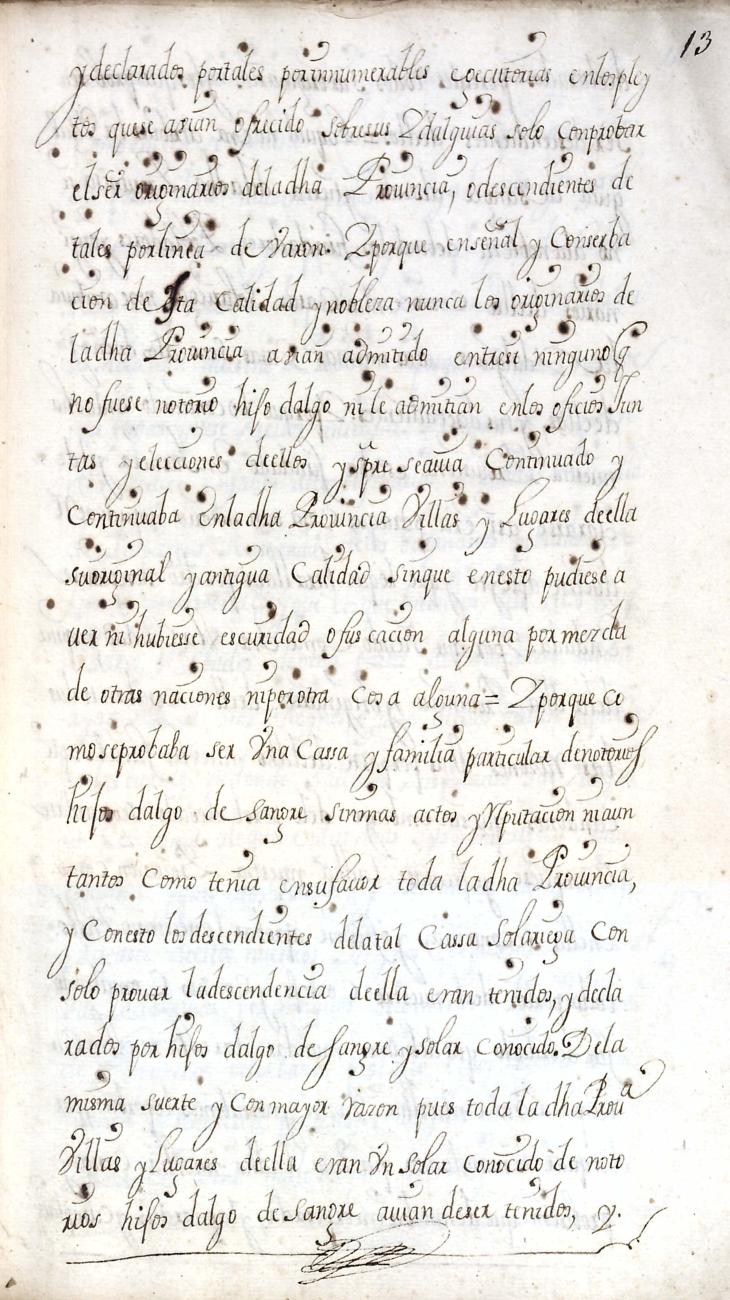 13
y declarados portales porinnumerables executorias enlospley
tos quese avian ofrecido sobresus Ydalguias solo Conprobar
elser originarios deladha Prouincia, odescendientes de
tales porlinea de Varon. Yporque enseñal y Conserba
cion de esta Calidad ynobleza nunca los originarios de
ladha Prouincia avian admitido entresi ninguno q
no fuese notorio hijo dalgo nile admitian enlos oficios Jun
tas yelecciones deellos yspre seauia Continuado y
Continuaba Enladha Prouincia Villas y Lugares deella
suoriginal yantigua Calidad sinque enesto pudiese a
uer ni hubiesse escuridad ofuscacion alguna por mezcla
de otras naciones niporotra Cosa alguna= Yporque Co
moseprobaba ser Vna Cassa y familia particular denotorios
hijos dalgo de Sangre sinmas actos yRputacion niaun
tantos Como tenia ensufauor toda ladha Prouincia,
y Conesto losdescendientes delatal Cassa Solariega Con
solo prouar ladescendencia deella eran tenidos, y decla
rados por hijos dalgo de Sangre ysolar Conocido. Dela
misma suerte y Con mayor razon pues toda la dha Prou^a
Villas y Lugares deella eran Vn Solar Conocido de noto
rios hijos dalgo de Sangre auian deser tenidos, y.